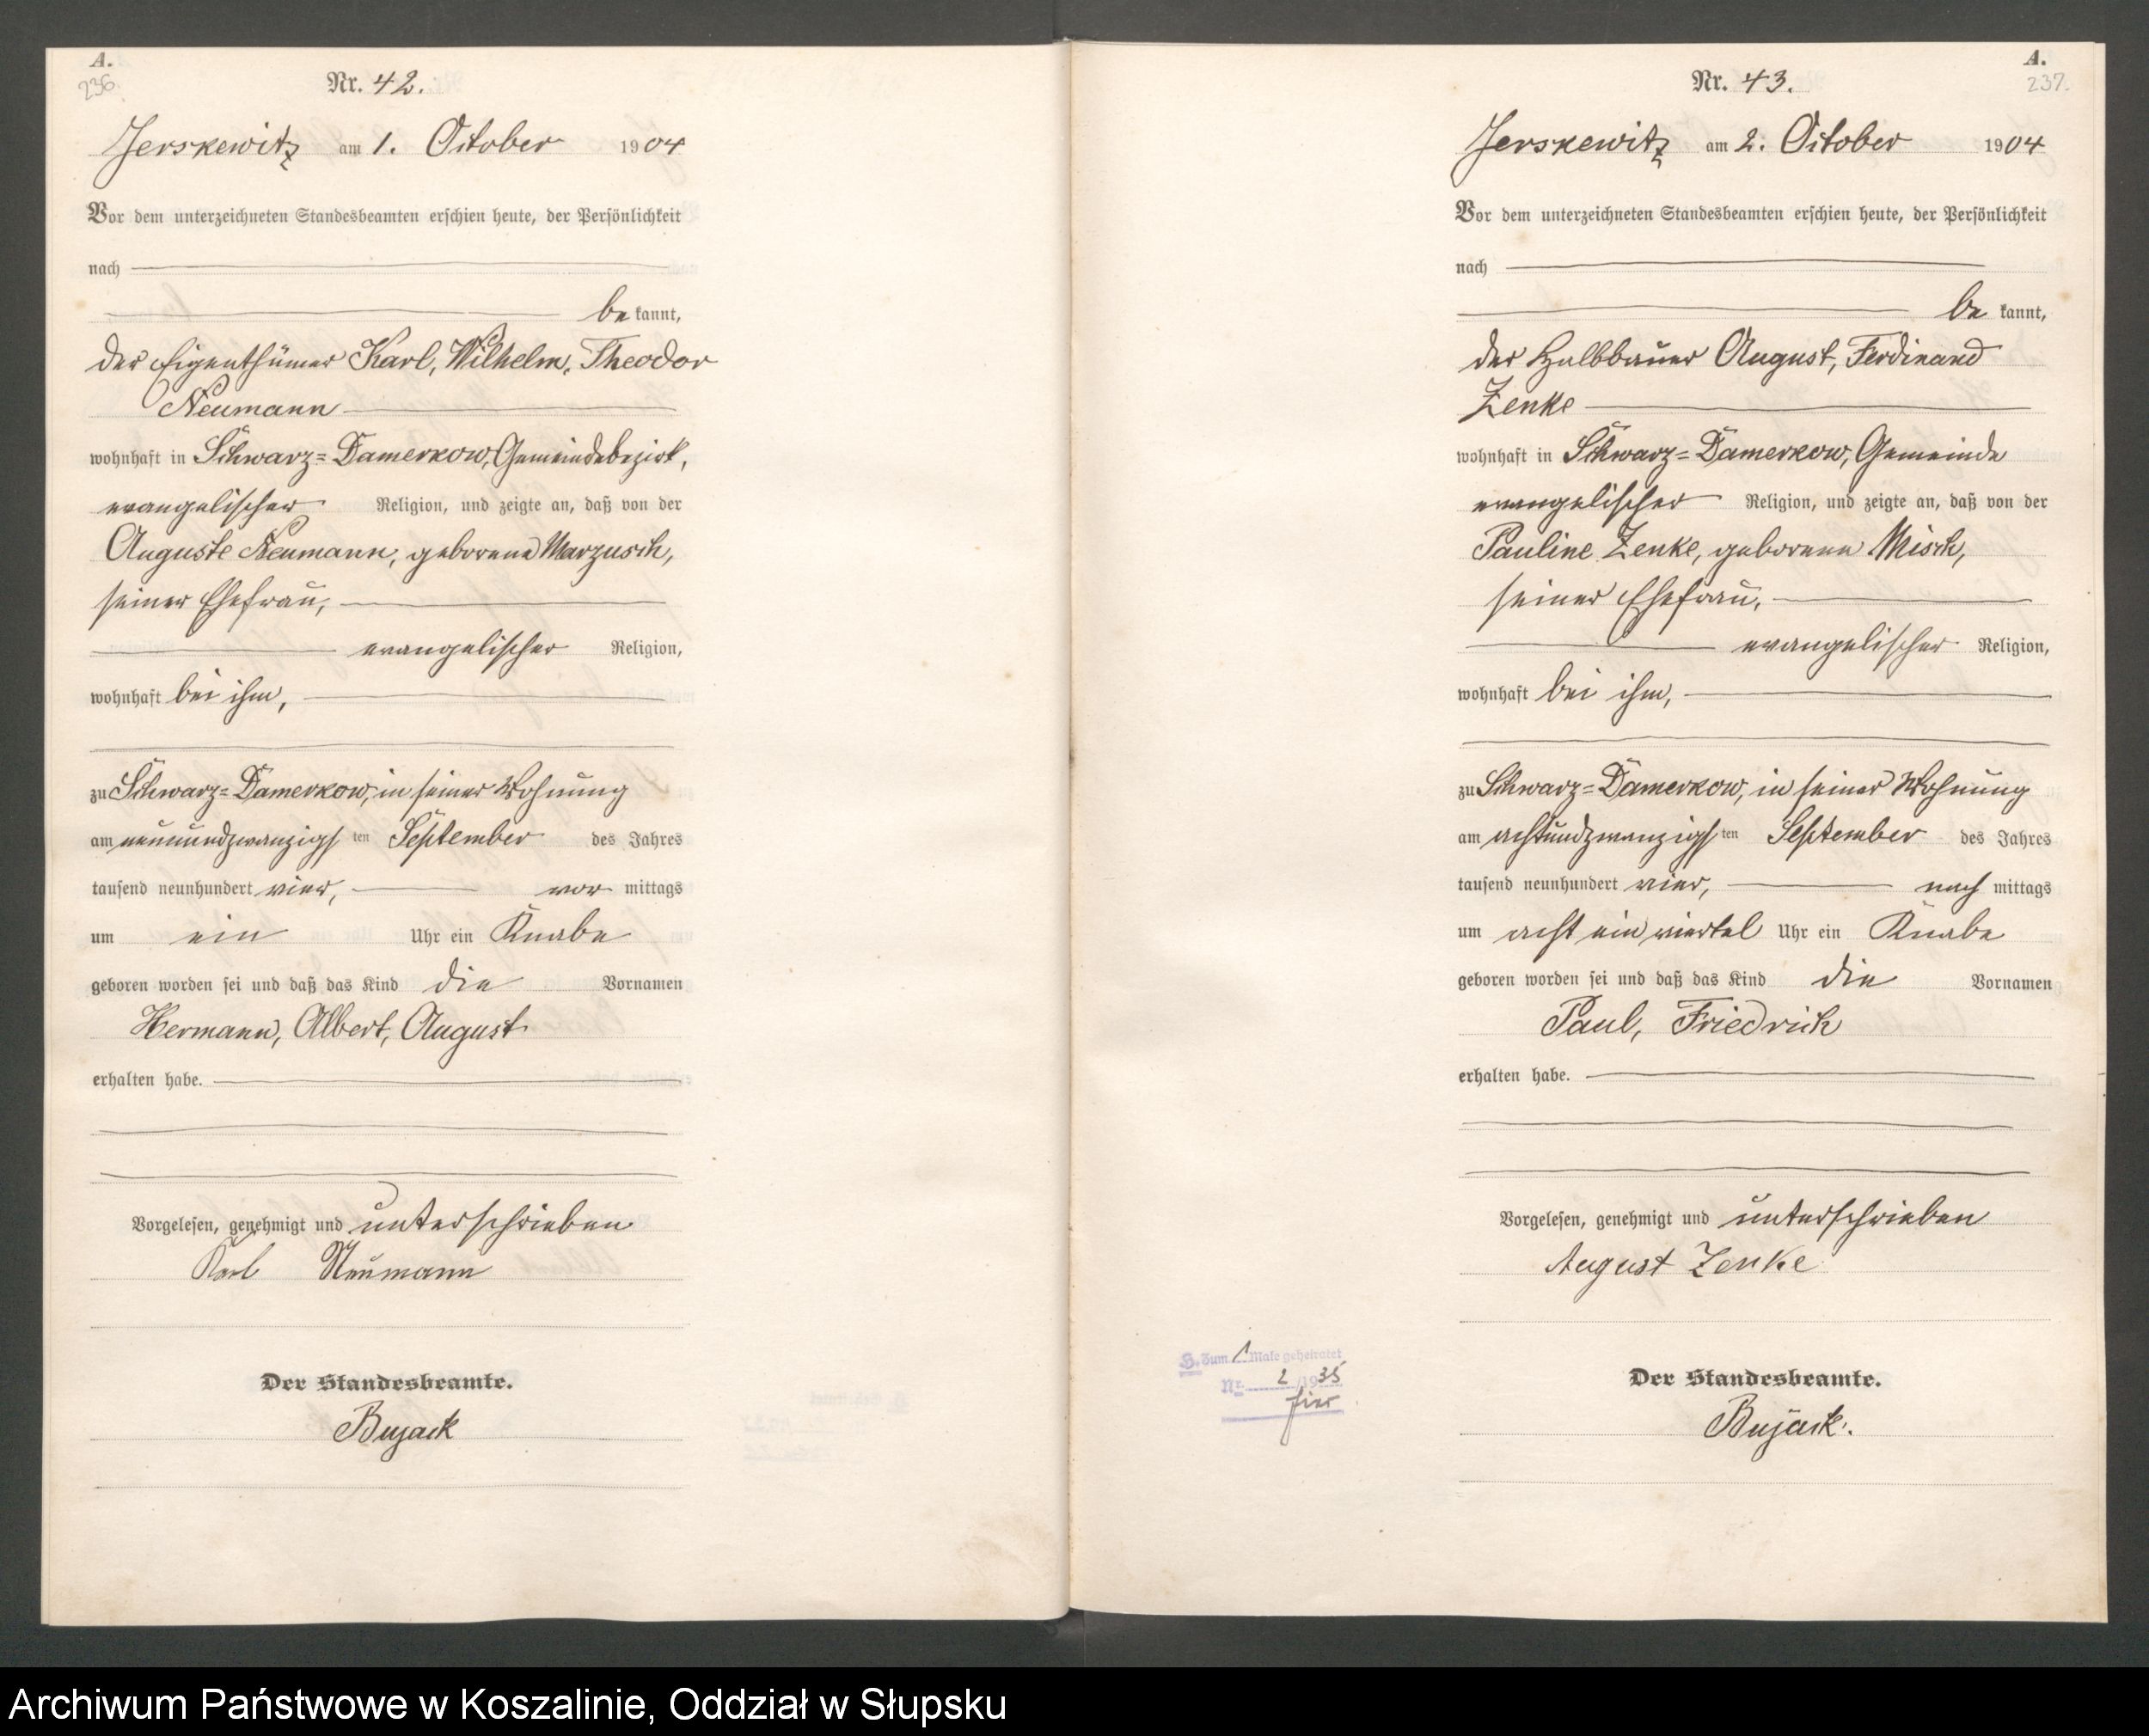 A.
236.
Nr. 42.
Jerskewitz am 1. October 1904
Vor dem unterzeichneten Standesbeamten erschien heute, der Persönlichkeit
nach
be kannt,
der Eigenthümer Karl, Wilhelm, Theodor
Neumann
wohnhaft in Schwarz=Damerkow, Gemeindebezirk,
evangelischer Religion, und zeigte an, daß von der
Auguste Neumann, geborene Marzusch,
seiner Ehefrau,
evangelischer Religion,
wohnhaft bei ihm,
zu Schwarz=Damerkow, in seiner Wohnung
am neunundzwanzigsten September des Jahres
tausend neunhundert vier, vor mittags
um ein Uhr ein Knabe
geboren worden sei und daß das Kind die Vornamen
Hermann, Albert, August
erhalten habe.
Vorgelesen, genehmigt und unterschrieben
Karl Neumann
Der Standesbeamte.
Bujack
A.
237.
Nr. 43.
Jerskewitz am 2. October 1904
Vor dem unterzeichneten Standesbeamten erschien heute, der Persönlichkeit
nach
be kannt,
der Halbbauer August, Ferdinand
Zenke
wohnhaft in Schwarz=Damerkow, Gemeinde
evangelischer Religion, und zeigte an, daß von der
Pauline Zenke, geborene Misch,
seiner Ehefrau,
evangelischer Religion,
wohnhaft bei ihm,
zu Schwarz=Damerkow, in seiner Wohnung
am achtundzwanzigsten September des Jahres
tausend neunhundert vier, nach mittags
um acht ein viertel Uhr ein Knabe
geboren worden sei und daß das Kind die Vornamen
Paul, Friedrich
erhalten habe.
Vorgelesen, genehmigt und unterschrieben
August Zenke
H. Zum 1 Male geheiratet
Nr. 2 /1935
hier
Der Standesbeamte.
Bujack.
Archiwum Państwowe w Koszalinie, Oddział w Słupsku